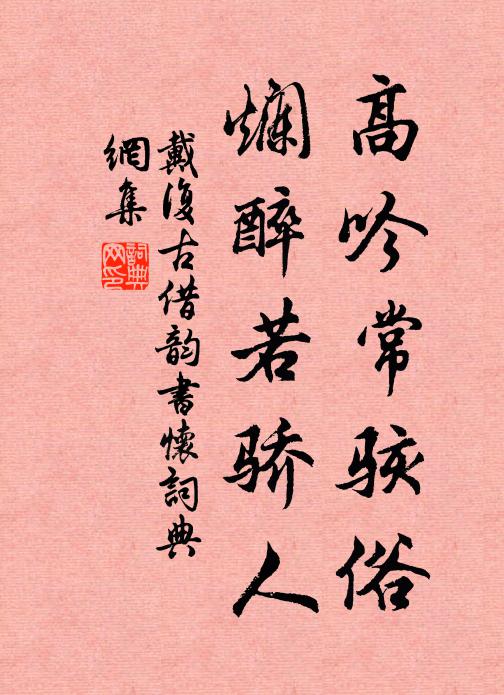 高吟常骇俗
爛醉若骄人
戴復古借韵書懷詞典
網集
詞典
网印